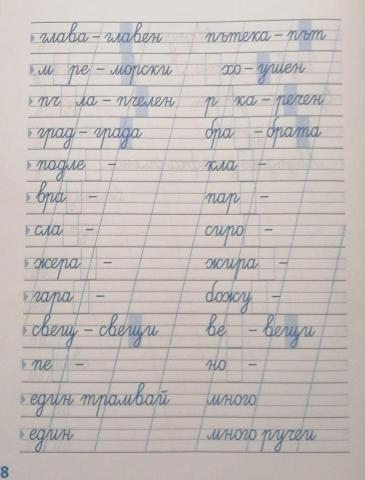 глава – главен пътека – път
м ре – морски хо – ушен
пч ла – пчелен р ка – речен
град – града бра – брата
подле – кла –
вра – пар –
сла – сиро –
жера – жира –
гара – божу –
свещ – свещи ве – вещи
пе – но –
един трамвай много
един много ручеи
8